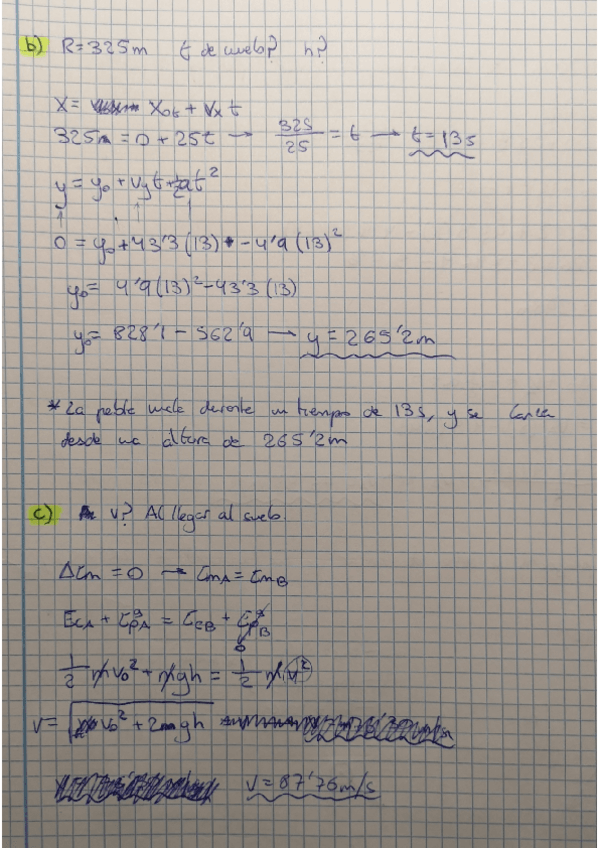 b) R=325m t de vuelo? h?
X= X₀t + Vx t
325m = 0 + 25t → 325/25 = t → t=13s
y = y₀ + Vyt + ½at²
0 = y₀+43'3 (13) - 4'9 (13)²
y₀= 4'9(13)²-43'3 (13)
y₀= 828'1 - 562'9 → y = 265'2m
* La pelota vuela durante un tiempo de 13s, y se lanza
desde una altura de 265'2m
c) v? Al llegar al suelo.
ΔEm = 0 → EmA = EmB
EcA + EpgA = EcB + EpgB 0
½ mv₀² + mgh = ½ m v²
v = √v₀² + 2gh
v=87'76m/s